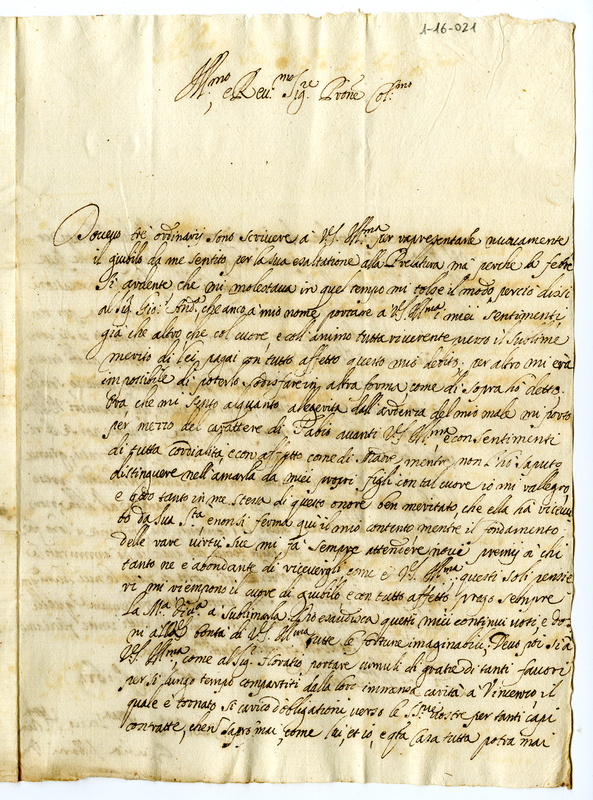 1-16-021
Ill.mo e Rev.mo Sig.re Prone Col.mo
Doveuo trè ordinarij sono scriuere à V.S. Ill.ma per rapresentarle nuouamente
il giubilo da me sentito per la sua esaltatione alla Prelatura mà perche la febre
si ardente che mi molestaua in quel tempo mi tolse il modo, perciò dissi
al Sig. Gio: And.a che anco à mio nome, portasse à V.S. Ill.ma i miei sentimenti
già che altro, che col cuore, e coll'animo tutta riuerente verso il sublime
merito di lei, pagai con tutto affetto questo mio debito; per altro mi era
impossibile di poterlo sodisfare in altra forma come di sopra hò detto.
Ora che mi sento alquanto alegerita dall'ardenza del mio male mi porto
per mezzo del carattere di Fabio auanti V.S. Ill.ma e con sentimenti
di tutta cordialità, e con affetto come di Madre, mentre non l'hò saputo
distinguere nell'amarla da miei proprj figli con tal cuore io mi rallegro,
e godo tanto in me stessa di questo onore ben meritato, che ella hà riceuu
to da sua S.tà e non si ferma quì il mio contento mentre il fondamento
delle rare virtù sue mi fà sempre attendere noui premij à chi
tanto ne è abondante di riceuergli come è V.S. Ill.ma questi soli pensie
ri mi riempono il cuore di giubilo e con tutto affetto prego sempre
la M.tà Diu.a à sublimarla. Dio esaudisca questi miei continui voti e do
ni alla bontà di V.S. Ill.ma tutte le fortune imaginabili; Deuo poi sì à
V.S. Ill.ma, come al Sig.r Horatio portare cumuli di gratie di tanti fauori
per si lungo tempo compartiti dalla loro immensa carità à Vincenzo, il
quale è tornato si carico d'obligationi verso le SS.rie vostre per tanti capi
contratte, che non saprò mai, come lui, et io, e q.ta Casa tutta potrà mai